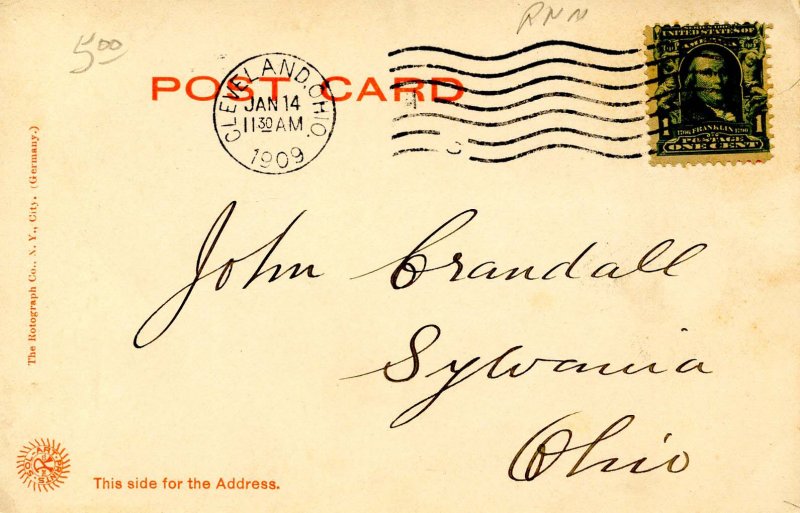 RNN
5.00
POST CARD
CLEVELAND, OHIO.
JAN 14
11 30 AM
1909
UNITED STATES OF
AMERICA
1 1
FRANKLIN
POSTAGE
ONE CENT
The Rotograph Co., N. Y., City. (Germany.)
John Crandall
Sylvania
Ohio
SOL-ART PRINTS
This side for the Address.